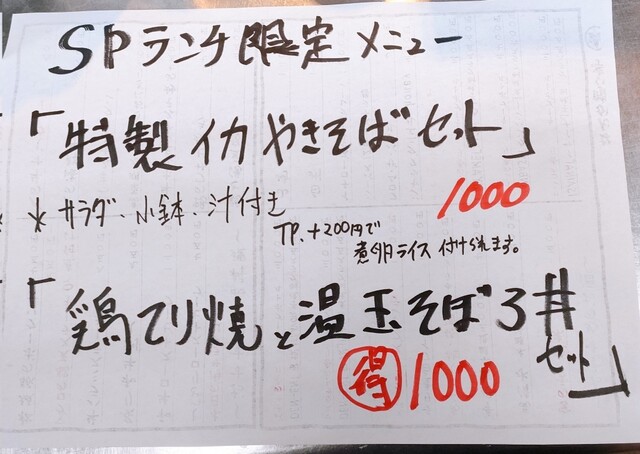 SPランチ限定メニュー
「特製イカやきそばセット」
1000
*サラダ、小鉢、汁付き
TP.+200円で
煮卵ライス付けられます。
「鶏てり焼と温玉そぼろ丼
セット」
得 1000